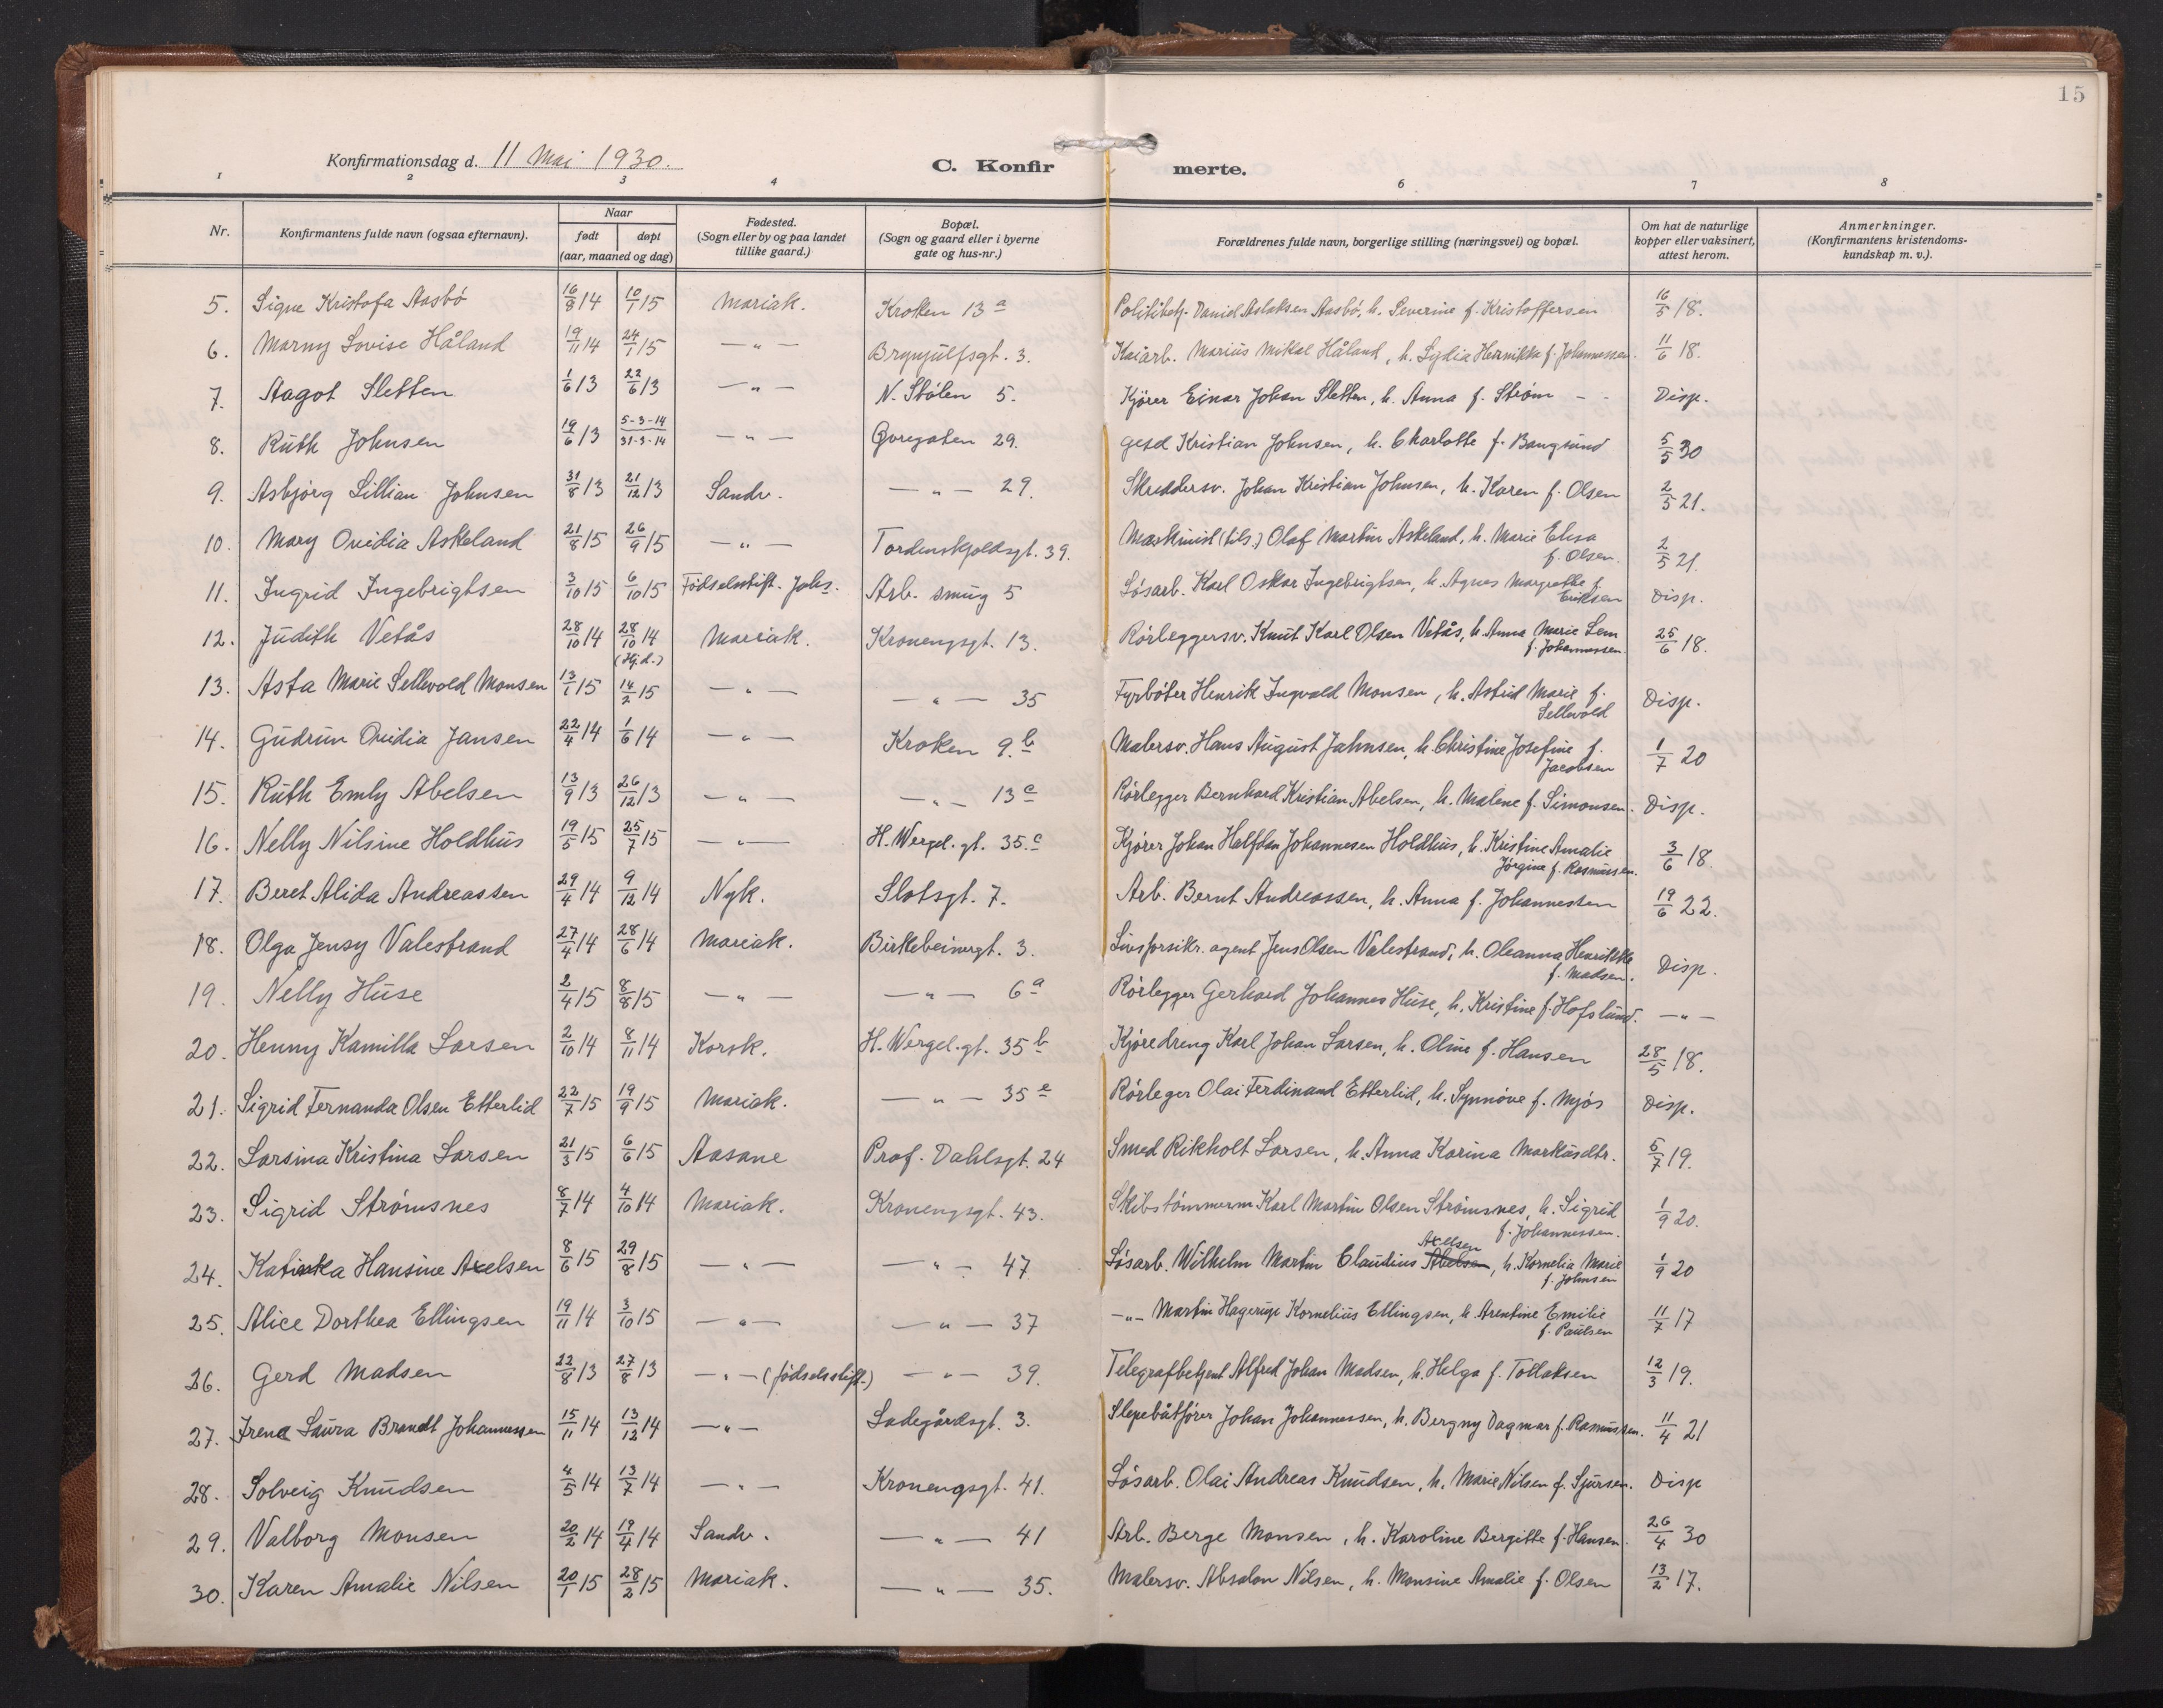 15
Konfirmationsdag d. 11 Mai 1930.
C. Konfir merte.
1 2 3 4 6 7 8
Nr. Konfirmantens fulde navn (ogsaa efternavn). Naar født døpt (aar, maaned og dag) Fødested. (Sogn eller by og paa landet tillike gaard.) Bopæl. (Sogn og gaard eller i byerne gate og hus-nr.) Forældrenes fulde navn, borgerlige stilling (næringsvei) og bopæl. Om hat de naturlige kopper eller vaksinert, attest herom. Anmerkninger. (Konfirmantens kristendoms-kundskap m. v.).
5. Signe Kristofa Aasbö 16/9 14 10/1 15 Mariak. Kroken 13a Politibetj. Daniel Aslaksen Aasbö, h. Severine f. Kristoffersen 16/5 18.
6. Marny Lovise Håland 19/11 14 24/1 15 —"— Brynjulfsgt. 3. Kaiarb. Marius Mikal Håland, h. Lydia Henrikka f. Johannessen. 11/6 18.
7. Aagot Sletten 1/6 13 22/6 13 —"— N. Stölen 5. Kjörer Einar Johan Sletten, h. Anna f. Ström - - Disp.
8. Ruth Johnsen 19/6 13 5-3-14 31-3-14 —"— Øvregaten 29. Kristian Johnsen, h. Charlotte f. Bangsund 5/5 30
9. Asbjörg Lillian Johnsen 31/8 13 21/12 13 Sandv. —"— 29. Skreddersv. Johan Kristian Johnsen, h. Karen f. Olsen 2/5 21.
10. Mary Ovidia Askeland 21/8 15 26/9 15 —"— Tordenskjoldsgt. 39. Maskinist (tils.) Olaf Martin Askeland, h. Marie Elisa f. Olsen. 2/5 21.
11. Ingrid Ingebrigtsen 3/10 15 6/10 15 Födselsstift. Johs. Arb. smug 5 Løsarb. Karl Oskar Ingebrigtsen, h. Agnes Margrethe f. Eriksen Disp.
12. Judith Vetås 28/10 14 28/10 14 (Hj.d.) Mariak. Kronengsgt. 13. Rörleggersv. Knut Karl Olsen Vetås, h. Anna Marie Lem f. Johannessen. 25/6 18.
13. Asta Marie Sellevold Monsen 13/1 15 14/2 15 —"— —"— 35 Fyrböter Henrik Ingvald Monsen, h. Astrid Marie f. Sellevold Disp.
14. Gudrun Ovidia Jansen 22/4 14 1/6 14 —"— Kroken 9.b Malersv. Hans August Jahnsen, h. Christine Josefine f. Jacobsen 1/7 20
15. Ruth Emly Abelsen 13/9 13 26/12 13 —"— —"— 13c Rörlegger Bernhard Kristian Abelsen, h. Malene f. Simonsen. Disp.
16. Nelly Nilsine Holdhus 19/5 15 25/7 15 —"— H. Wergel. gt. 35.c Kjörer Johan Halfdan Johannesen Holdhus, h. Kristine Amalie Jörgine f. Rasmussen. 3/6 18.
17. Beret Alida Andreassen 29/4 14 9/12 14 Nyk. Slotsgt. 7. Arb. Bernt Andreassen, h. Anna f. Johannessen 19/6 22.
18. Olga Jensy Valestrand 27/4 14 28/6 14 Mariak. Birkebeinergt. 3. Livsforsikr. agent Jens Olsen Valestrand, h. Oleanna Henrikke f. Madsen. Disp.
19. Nelly Huse 2/4 15 8/8 15 —"— —"— 6a Rörlegger Gerhard Johannes Huse, h. Kristine f. Hofslund. —"—
20. Henny Kamilla Larsen 2/10 14 8/11 14 Korsk. H. Wergel. gt. 35b Kjöredreng Karl Johan Larsen, h. Oline f. Hansen 28/5 18.
21. Sigrid Fernanda Olsen Etterlid 22/7 15 19/9 15 Mariak. —"— 35e Rörleger Olai Ferdinand Etterlid, h. Synnöve f. Mjös Disp.
22. Larsina Kristina Larsen 21/3 15 6/6 15 Aasane Prof. Dahlsgt. 24 Smed Rikholt Larsen, h. Anna Karina Markusdtr. 5/7 19.
23. Sigrid Strømsnes 8/7 14 4/10 14 Mariak. Kronengsgt. 43. Skibstömmerm Karl Martin Olsen Strömsnes, h. Sigrid f. Johannessen. 1/9 20.
24. Katinka Hansine Axelsen 8/6 15 29/8 15 —"— —"— 47 Løsarb. Wilhelm Martin Claudius Abelsen Axelsen, h. Kornelia Marie f. Johnsen 1/9 20
25. Alice Dorthea Ellingsen 19/11 14 3/10 15 —"— —"— 37 —"— Martin Hagerup Kornelius Ellingsen, h. Arentine Emilie f. Paulsen 11/7 17
26. Gerd Madsen 22/8 13 27/8 13 —"— (fødselsstift.) —"— 39. Telegrafbetjent Alfred Johan Madsen, h. Helga f. Tollaksen 12/3 19.
27. Irene Laura Brandt Johannessen 15/11 14 13/12 14 —"— Ladegårdsgt. 3. Slepebåtförer Johan Johannessen, h. Bergny Dagmar f. Rasmussen. 11/4 21
28. Solveig Knudsen 4/5 14 13/7 14 —"— Kronengsgt. 41. Løsarb. Olai Andreas Knudsen, h. Marie Nilsen f. Sjursen. Disp
29. Valborg Monsen 20/2 14 19/4 14 Sandv. —"— 41 Arb. Berge Monsen, h. Karoline Bergitte f. Hansen. 26/4 30
30. Karen Amalie Nilsen 20/1 15 28/2 15 Mariak. —"— 35. Malersv. Absalon Nilsen, h. Monsine Amalie f. Olsen 13/2 17.